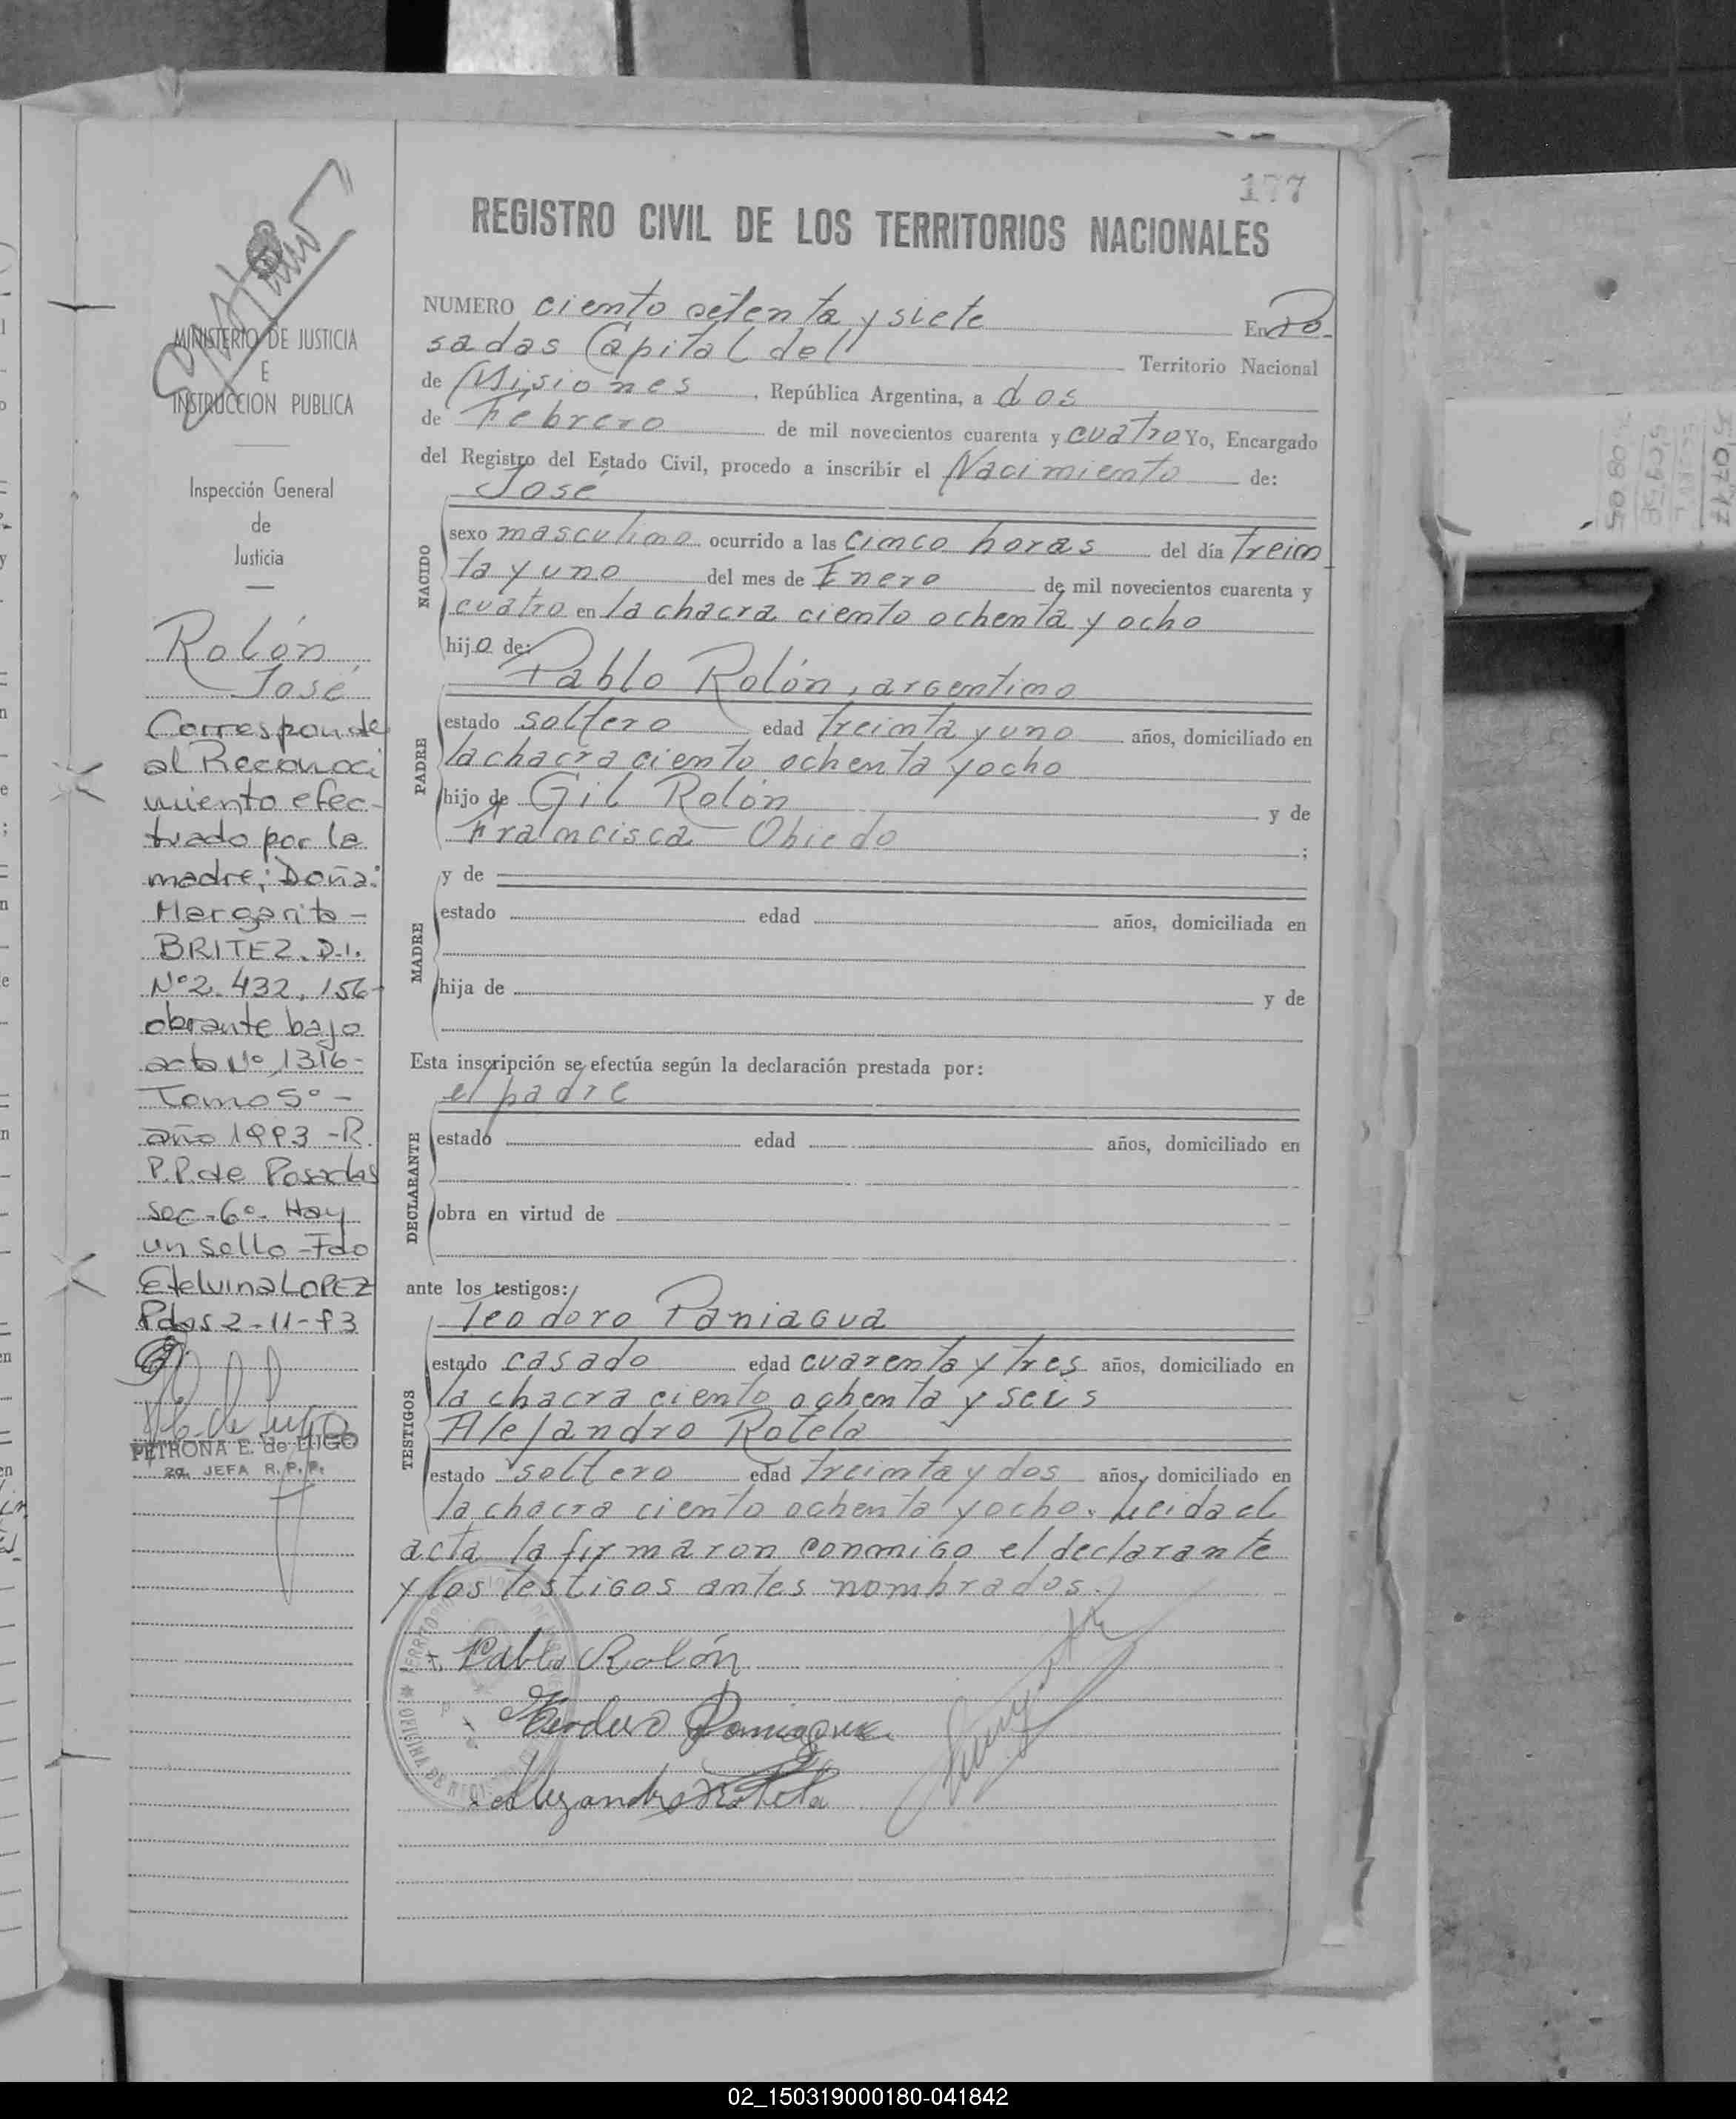 177
REGISTRO CIVIL DE LOS TERRITORIOS NACIONALES
MINISTERIO DE JUSTICIA
E
INSTRUCCION PUBLICA
Inspección General
de
Justicia
Rolón
José
Corresponde
al Reconoci
miento efec-
tuado por la
madre; Doña:
Margarita -
BRITEZ. D.I.
Nº 2.432.156-
obrante bajo
acta Nº 1316-
Tomo 5º -
año 1993 - R.
P.P. de Posadas
Sec - 6º - Hay
un Sello - Fdo
Etelvina LOPEZ
Pdas 2-11-93
PETRONA E. de
2a. JEFA R. P. P.
NUMERO ciento setenta y siete En Po-
sadas Capital del Territorio Nacional
de Misiones, República Argentina, a dos
de Febrero de mil novecientos cuarenta y cuatro Yo, Encargado
del Registro del Estado Civil, procedo a inscribir el Nacimiento de:
José
NACIDO
sexo masculino ocurrido a las cinco horas del día trein
ta y uno del mes de Enero de mil novecientos cuarenta y
cuatro en la chacra ciento ochenta y ocho
hijo de:
Pablo Rolón, argentino
PADRE
estado soltero edad treinta y uno años, domiciliado en
la chacra ciento ochenta y ocho
hijo de Gil Rolón y de
Francisca Obiedo ;
MADRE
y de
estado edad años, domiciliada en
hija de y de
Esta inscripción se efectúa según la declaración prestada por:
el padre
DECLARANTE
estado edad años, domiciliado en
obra en virtud de
ante los testigos:
Teodoro Paniagua
TESTIGOS
estado casado edad cuarenta y tres años, domiciliado en
la chacra ciento ochenta y seis
Alejandro Rotela
estado soltero edad treinta y dos años, domiciliado en
la chacra ciento ochenta y ocho. Leida el
acta la firmaron conmigo el declarante
y los testigos antes nombrados.
Pablo Rolón
Teodoro Paniagua
Alejandro Rotela
02_150319000180-041842